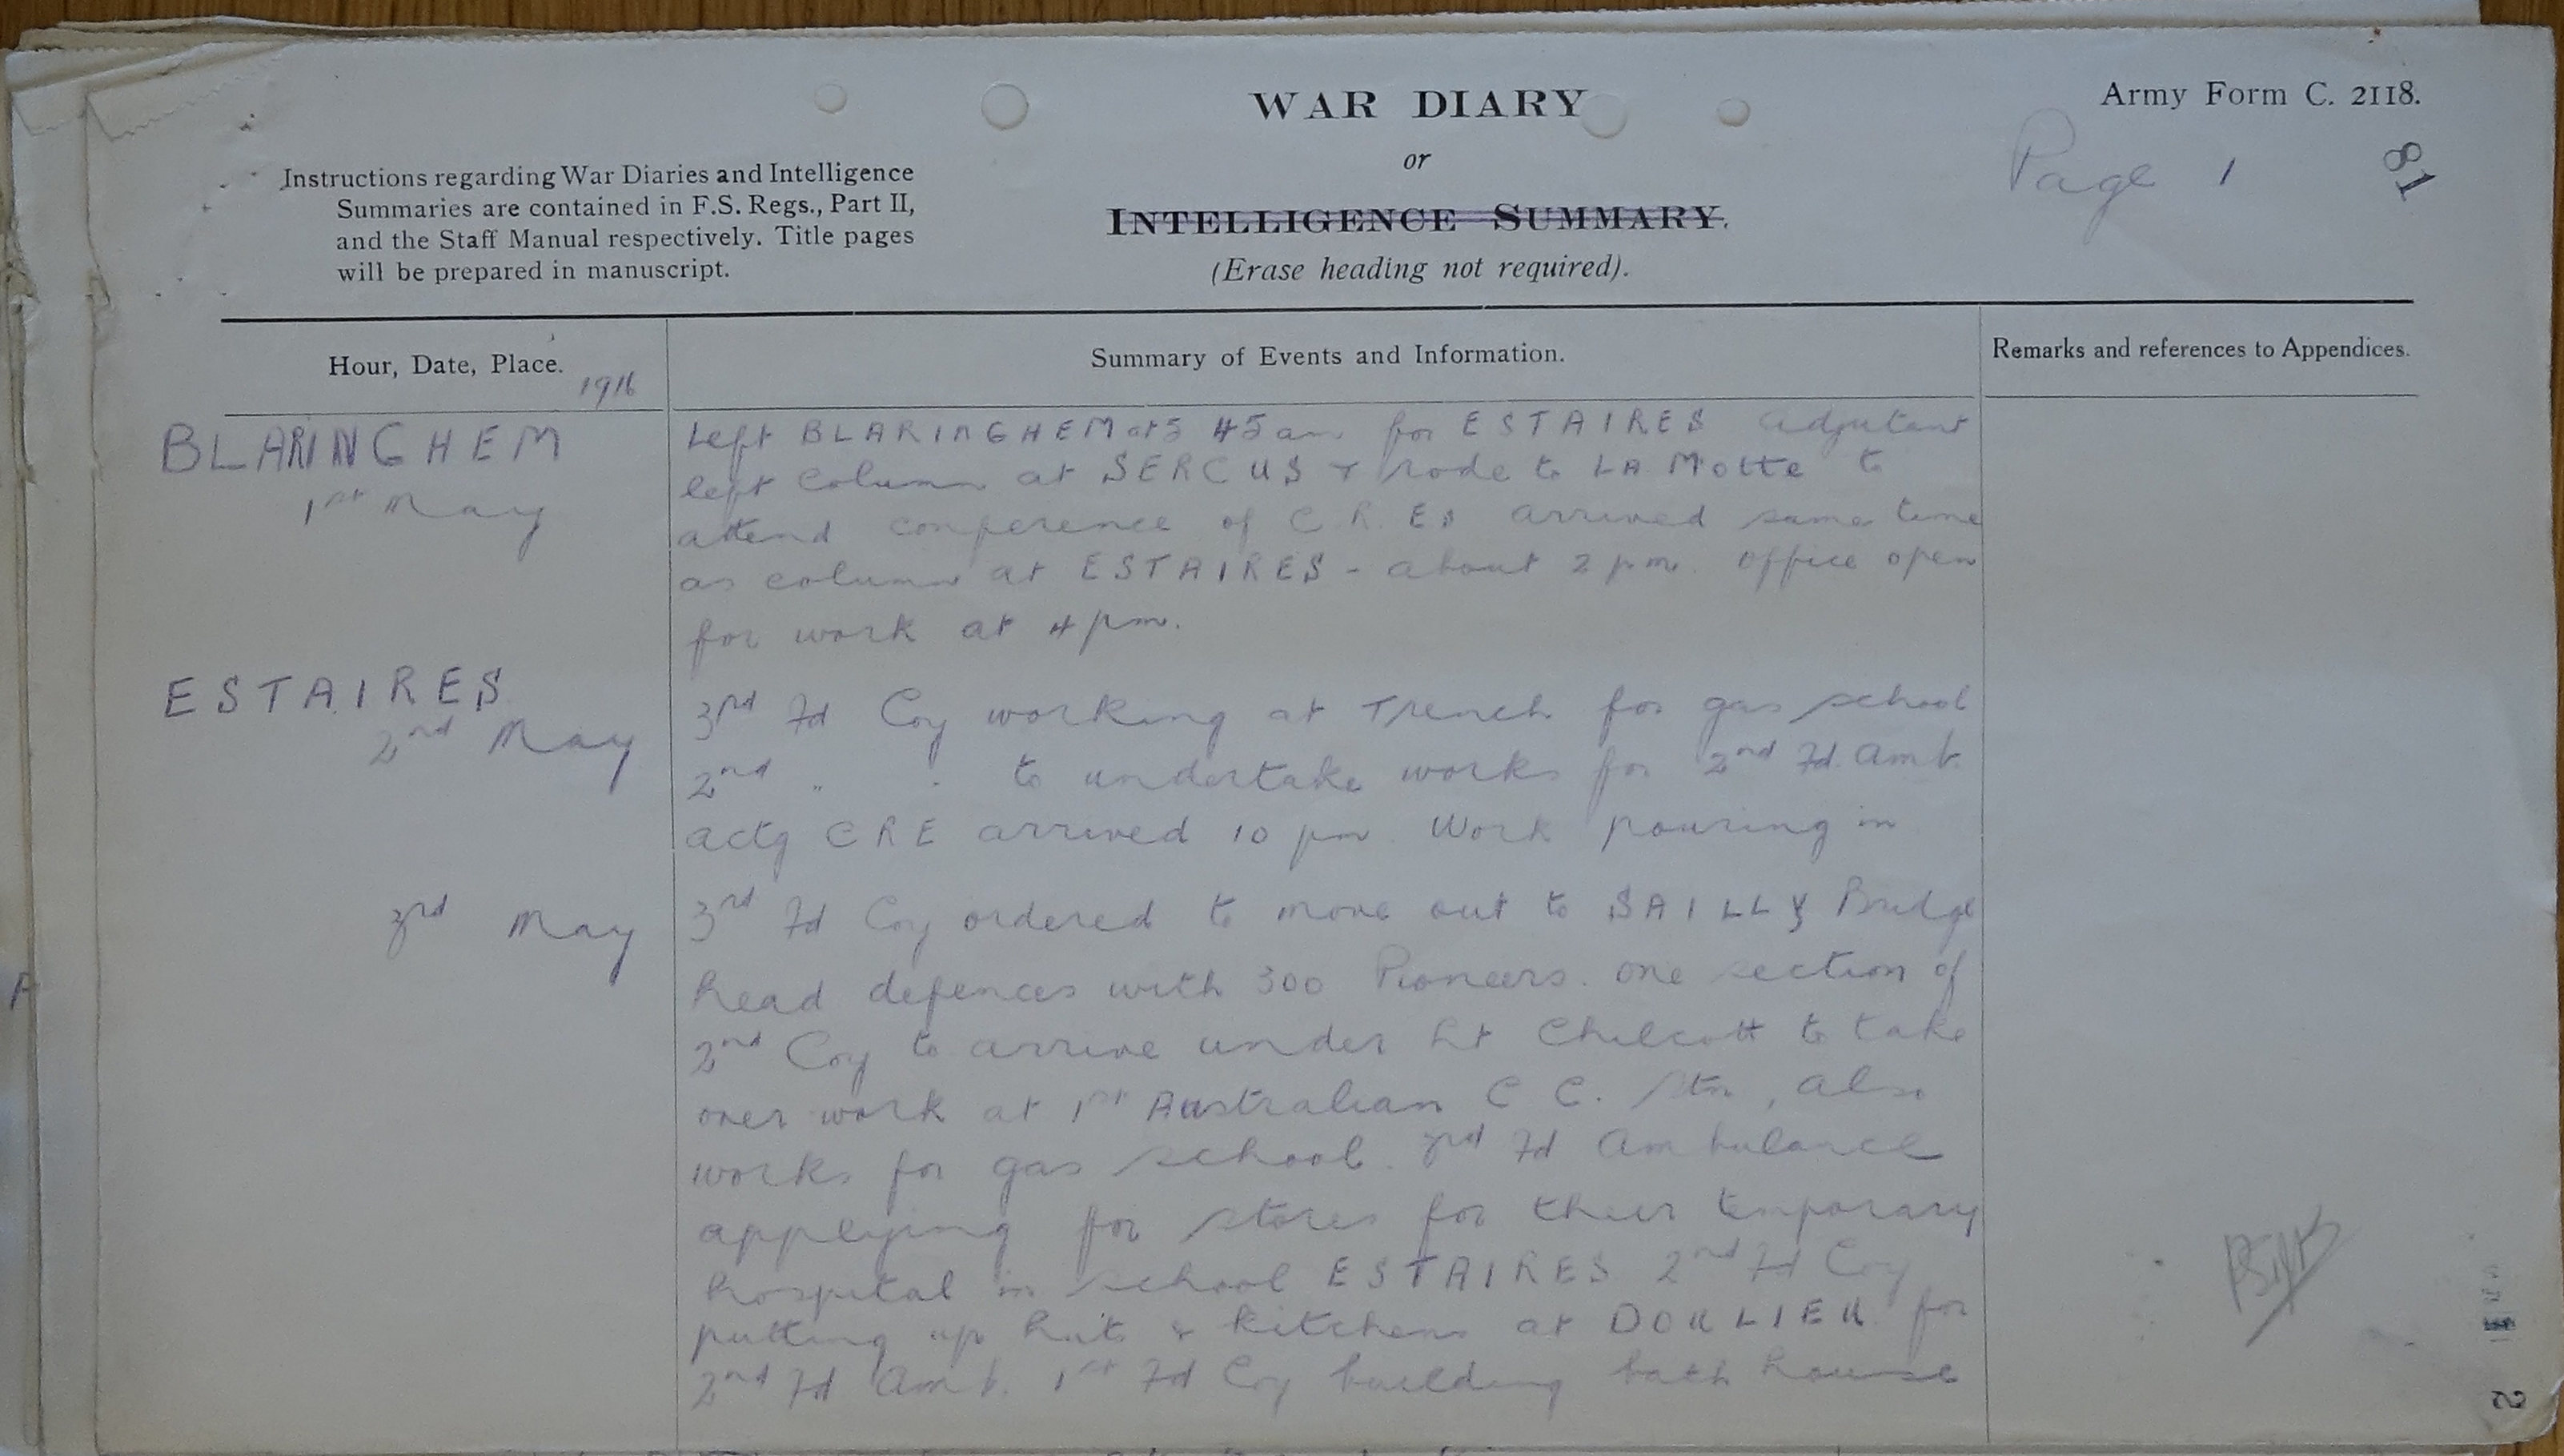 WAR DIARY
or
INTELLIGENCE SUMMARY.
(Erase heading not required).
Army Form C. 2118.
Page 1
81
Instructions regarding War Diaries and Intelligence
Summaries are contained in F.S. Regs., Part II,
and the Staff Manual respectively. Title pages
will be prepared in manuscript.
Hour, Date, Place.
1916
Summary of Events and Information.
Remarks and references to Appendices.
BLARINGHEM
1st May
Left BLARINGHEM at 5 45 am for ESTAIRES adjutant
left column at SERCUS & rode to LA Motte to
attend conference of C.R.Es arrived same time
as column at ESTAIRES - about 2 pm. office open
for work at 4 pm.
ESTAIRES
2nd May
3rd Fd Coy working at Trench for gas school
2nd " " to undertake works for 2nd Fd. Amb.
actg CRE arrived 10 pm Work pouring in
3rd May
3rd Fd Coy ordered to move out to SAILLY Bridge
head defences with 300 Pioneers. one section of
2nd Coy to arrive under Lt Chilcott to take
over work at 1st Australian C C. Stn, also
works for gas school. 3rd Fd Ambulance
applying for stores for their temporary
hospital in school ESTAIRES 2nd Fd Coy
putting up huts & kitchens at DOULIEU for
2nd Fd Amb. 1st Fd Coy building bath house
2